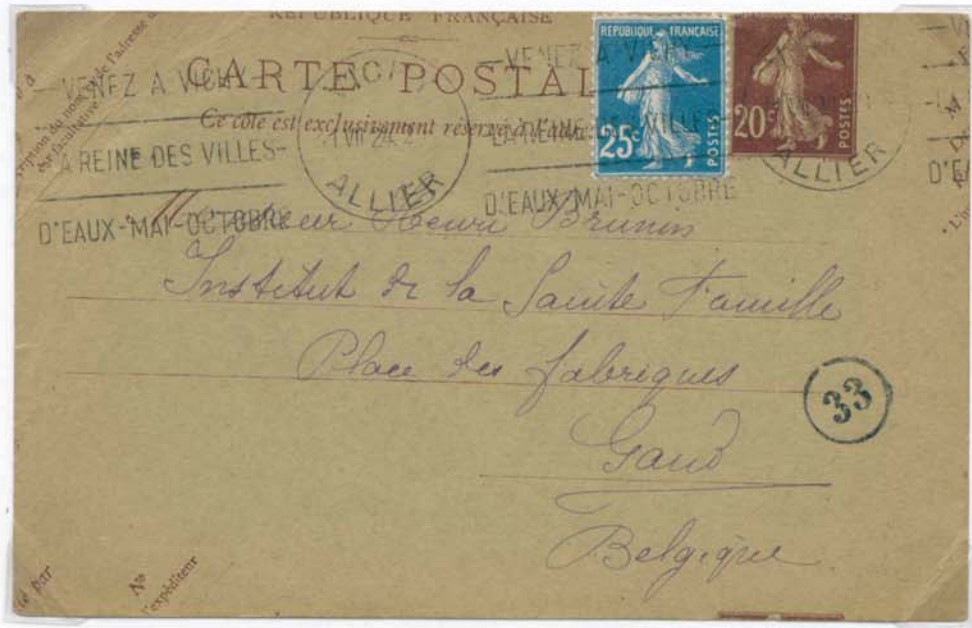 RÉPUBLIQUE FRANÇAISE
CARTE POSTAL
Ce côté est exclusivement réservé à l'adresse
VENEZ A VICH
A REINE DES VILLES-
D'EAUX-MAI-OCTOBRE
ALLIER
VENEZ A VICH
LA REINE DES VILLES
D'EAUX-MAI-OCTOBRE
ALLIER
D'E
RÉPUBLIQUE FRANÇAISE
25c
POSTES
RÉPUBLIQUE FRANÇAISE
20c
POSTES
Henri Brunin
Institut de la Sainte Famille
Place des fabriques
Gand
Belgique
33
par
No
l'expéditeur
de l'adresse
est facultative.